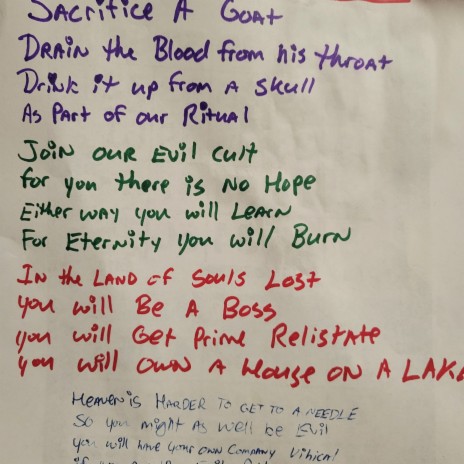 Sacrifice A Goat
Drain the Blood from his throat
Drink it up from A skull
As Part of our Ritual
Join our Evil Cult
for you there is No Hope
Either way you will Learn
For Eternity you will Burn
In the Land of Souls Lost
you will Be A Boss
you will Get Prime Relistate
you will own A House on A LAK
Heaven is Harder to get to A Needle
So you might As well be Evil
you will have your own Company Vihical